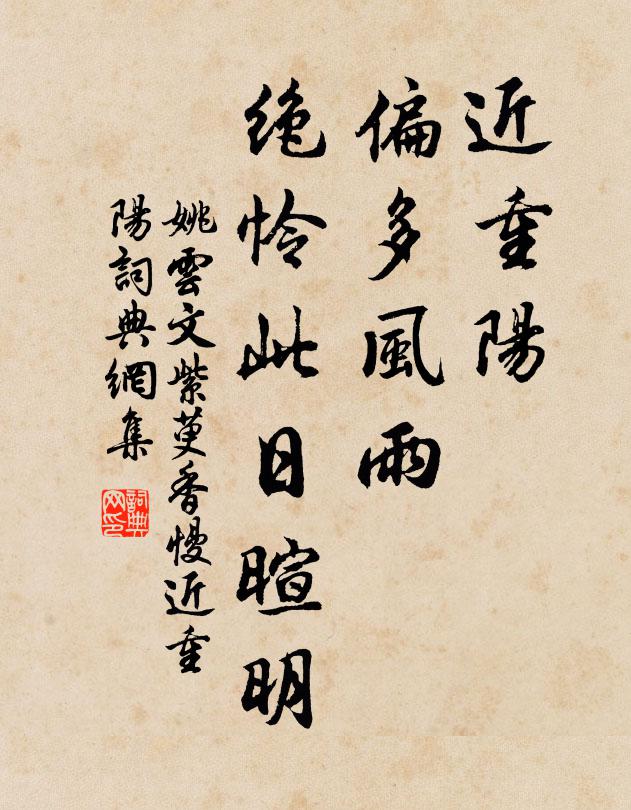 近重陽
偏多風雨
絶怜此日暄明
姚雲文紫萸香慢近重
陽詞典網集
詞典网印